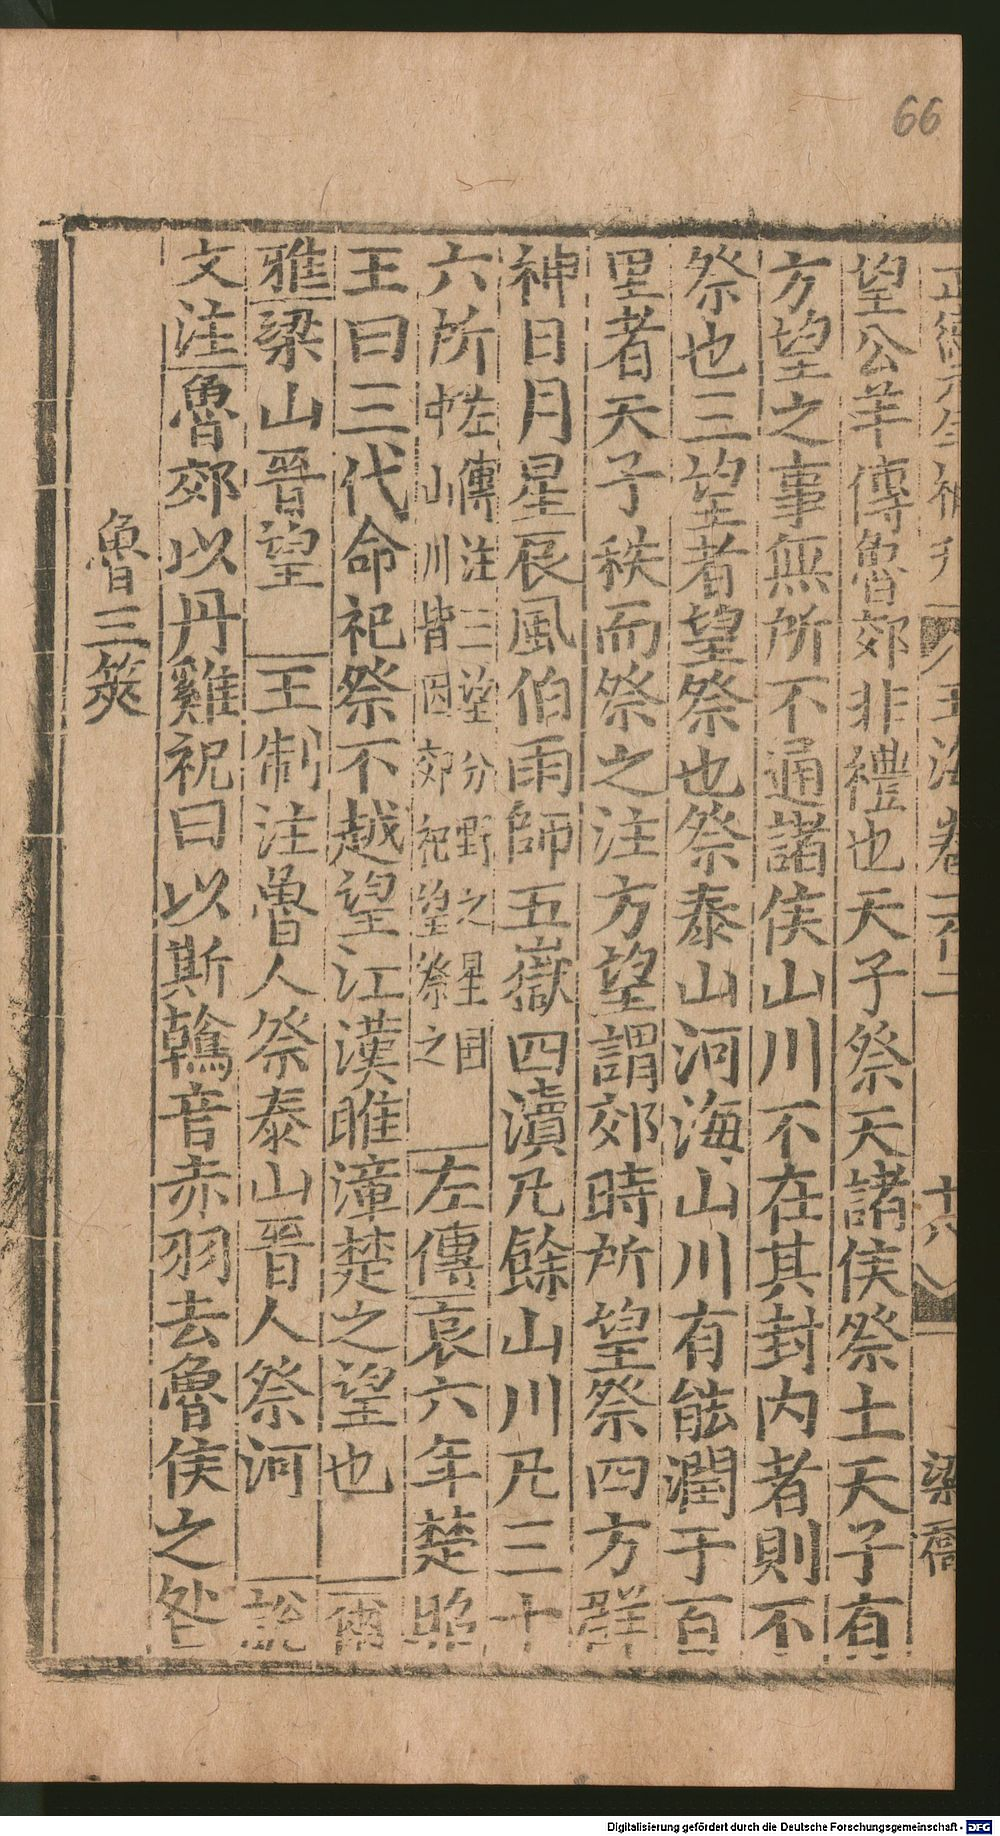 66
正德元年補刋 玉海卷 十八 梁喬
望公羊傳魯郊非禮也天子祭天諸侯祭土天子有
方望之事無所不通諸侯山川不在其封内者則不
祭也三望者望祭也祭泰山河海山川有能潤于百
里者天子秩而祭之注方望謂郊時所望祭四方群
神日月星辰風伯雨師五嶽四瀆凡餘山川凡三十
六所左傳注三望分野之星国中山川皆因郊祀望祭之 左傳哀六年楚昭
王曰三代命祀祭不越望江漢睢漳楚之望也 爾
雅梁山晉望 王制注魯人祭泰山晉人祭河 說
文注魯郊以丹雞祝曰以斯鶾音赤羽去魯侯之咎
魯三筴
Digitalisierung gefördert durch die Deutsche Forschungsgemeinschaft - DFG